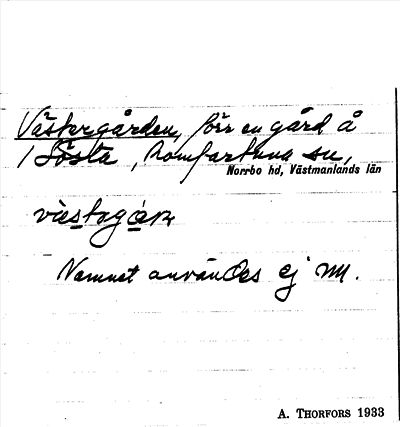 Västergården, förr en gård å
Sösta, Romfartuna sn,
Norrbo hd, Västmanlands län
Namnet användes ej nu.
A. THORFORS 1933